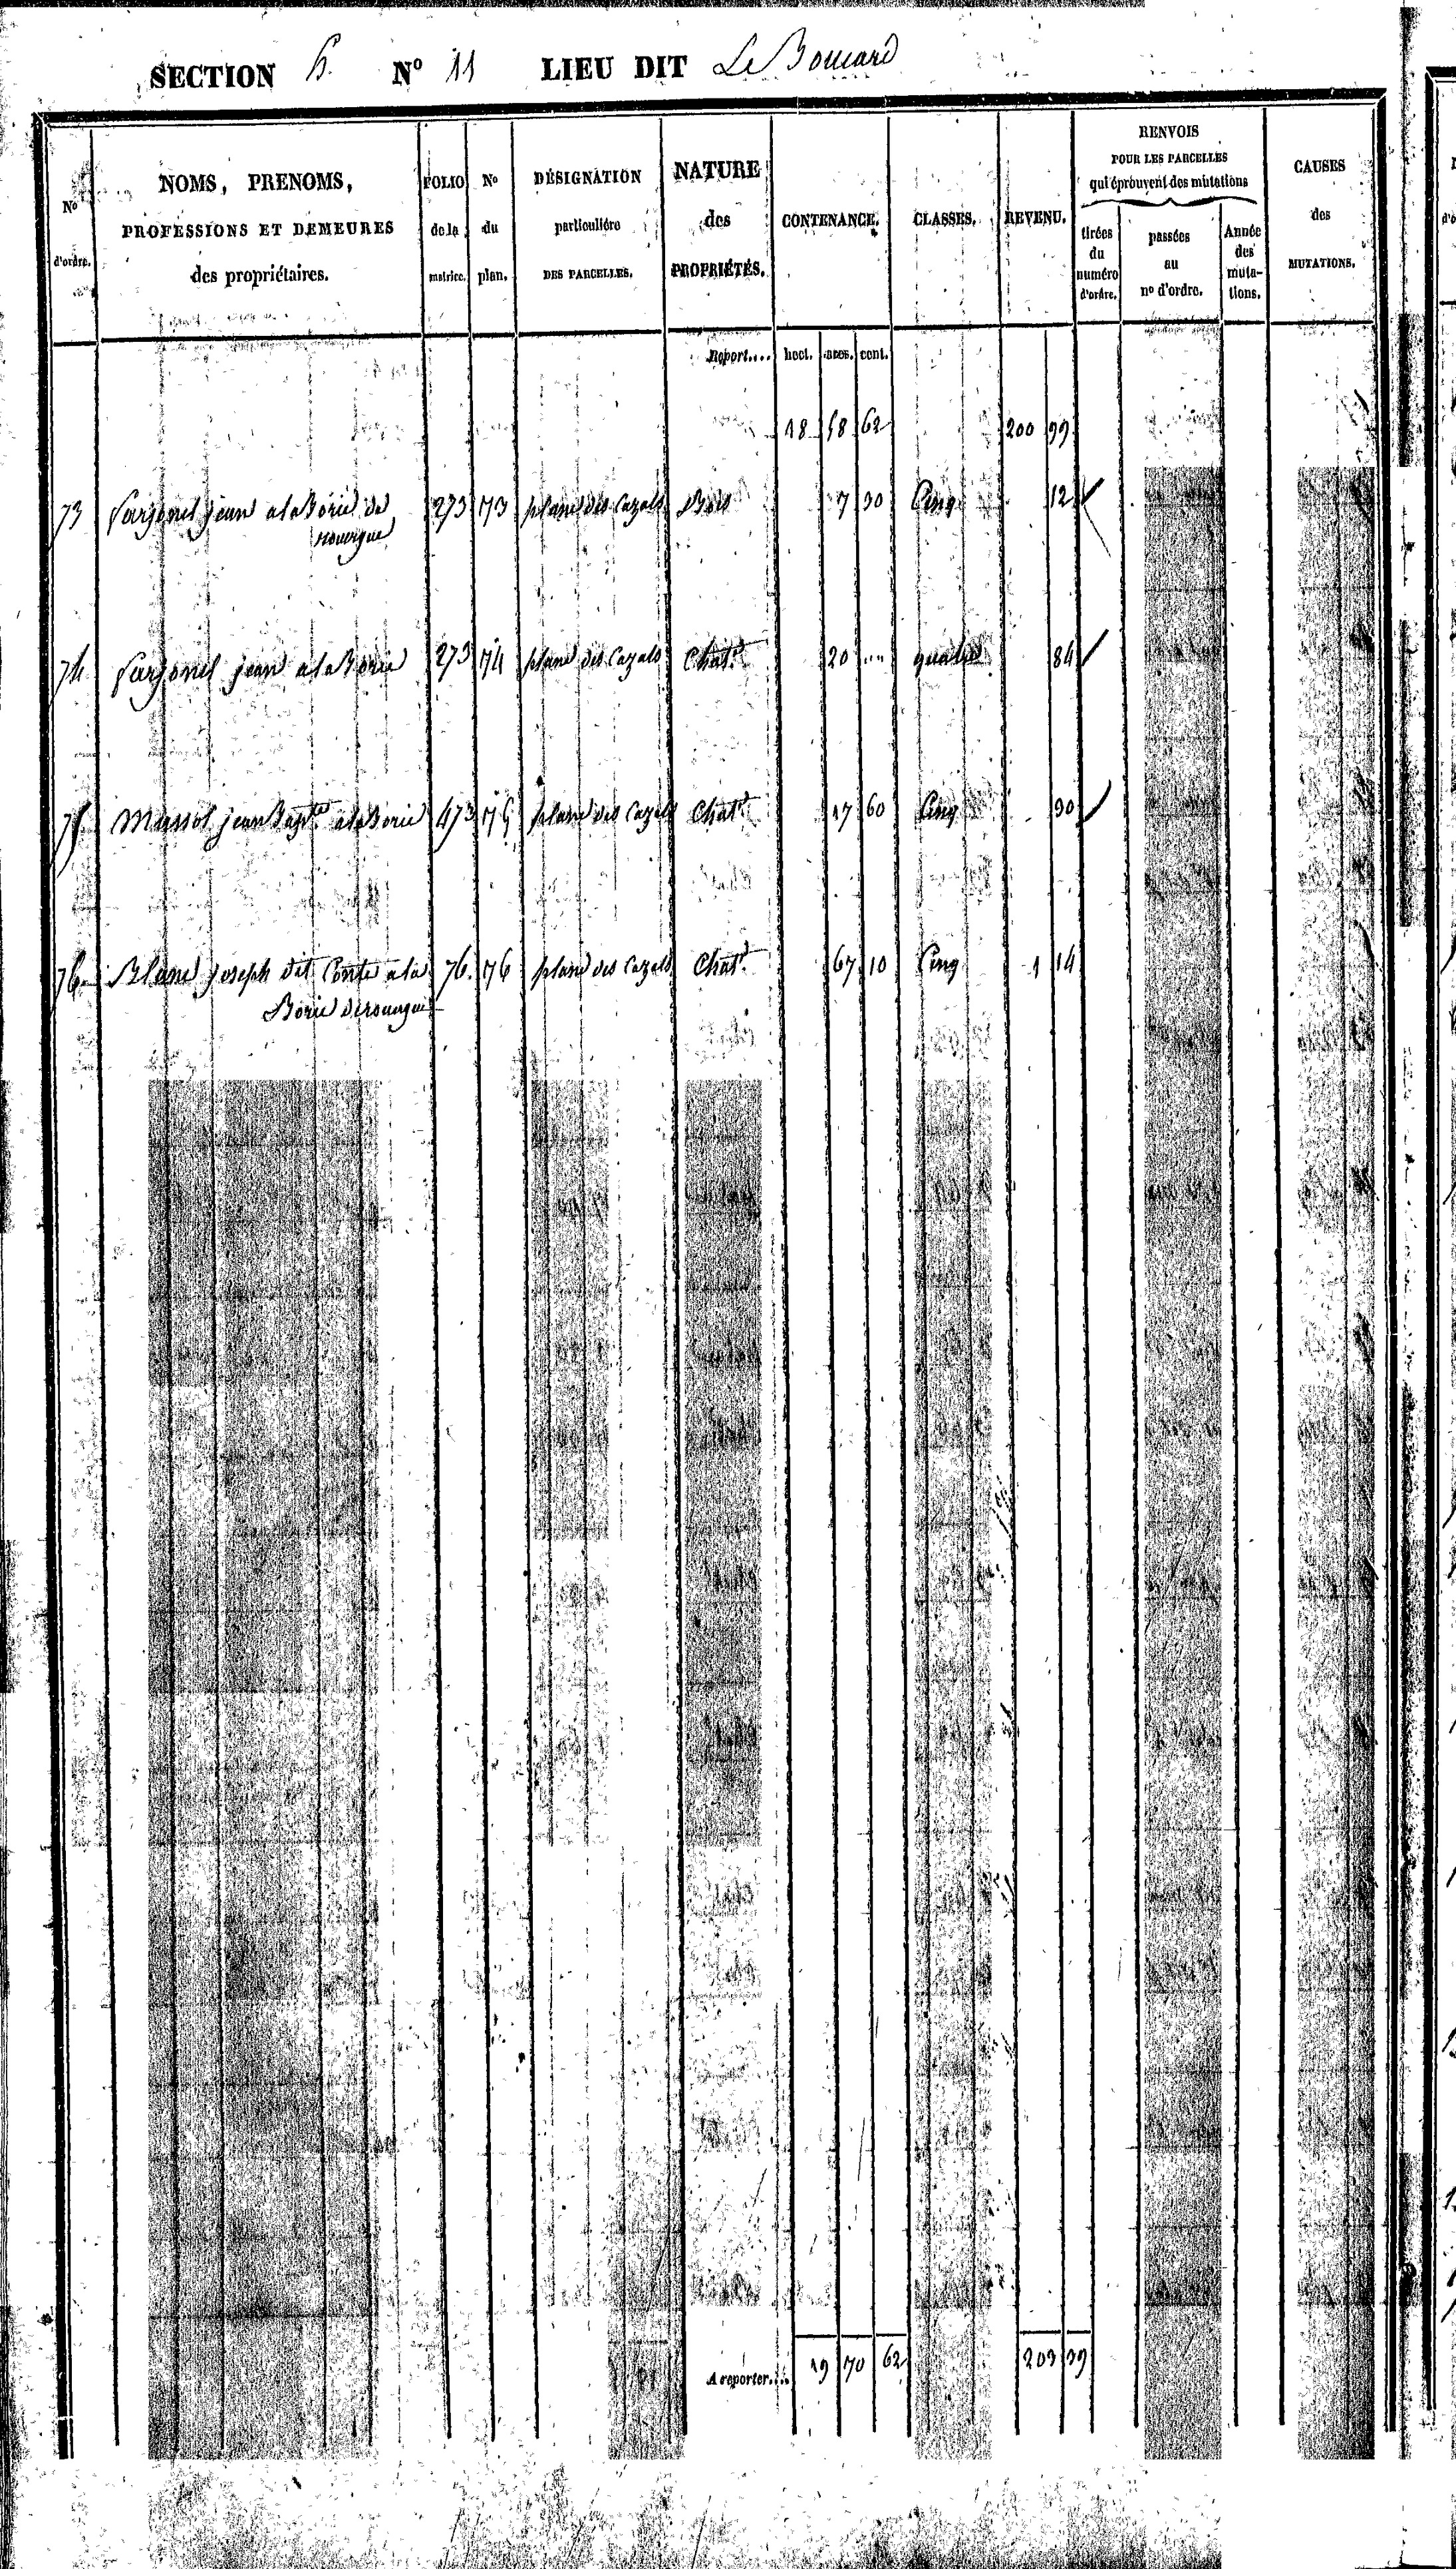 SECTION h. N° 11 LIEU DIT Le Boucard
N° d'ordre.
NOMS, PRENOMS,
PROFESSIONS ET DEMEURES
des propriétaires.
FOLIO de la matrice.
N° du plan.
DÉSIGNATION
particulière
DES PARCELLES.
NATURE
des
PROPRIÉTÉS.
CONTENANCE.
CLASSES.
REVENU.
RENVOIS
POUR LES PARCELLES
qui éprouvent des mutations
tirées du numéro d'ordre.
passées au n° d'ordre.
Année des muta-tions.
CAUSES
des
MUTATIONS.
Report.... hect. ares. cent.
18 58 62 200 99
73 jean a la Borie de 273 173 plane des Cazals Bois 7 30 Cinq 12
rouergue
74 jean a la Borie 273 174 plane des Cazals Chat. 20 ... quatre 84
75 Massol jean Bapte a la Borie 473 175 plane des Cazals Chat. 17 60 Cinq 30
76 Blanc joseph dit Conte a la 76. 176 plane des Cazals Chat. 67 10 Cinq 1 14
Borie de rouergue
A reporter.... 19 70 62 203 39